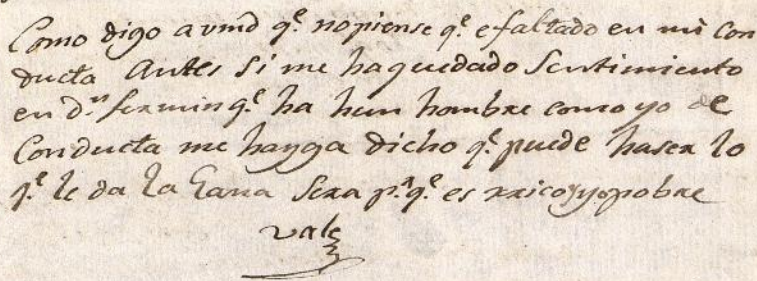 Como digo a vmd q.e no piense q.e e faltado en mi con
ducta Antes si me ha quedado Sentimiento
en d.n fermin q.e ha hun hombre como yo de
Conducta me hayga dicho q.e puede haser lo
q.e le da la Gana Sera p.r q.e es rrico y yo pobre
vale